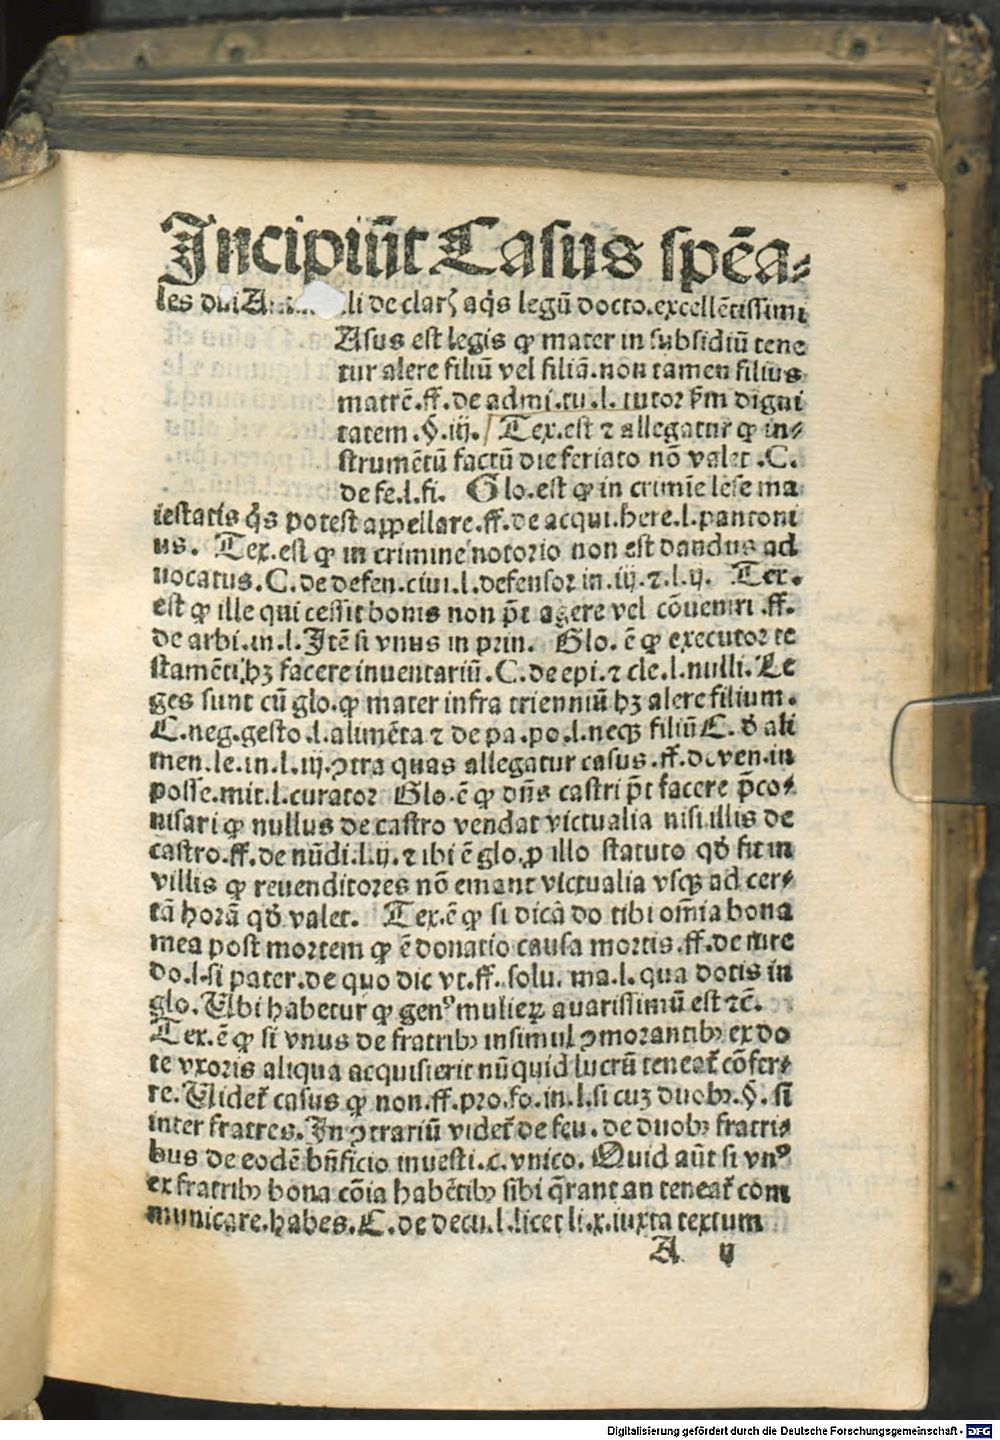 Incipiūt Casus spēa⸗
les dn̄i li de clarꝭ aq̄s legū docto.excellētissimi
Asus est legis ꝙ mater in subsidiū tene
tur alere filiū vel filiā.non tamen filius
matrē.ff.de admi.tu.l.tutor ẜm digni
tatem.§.iij. Tex.est ⁊ allegatur ꝙ in⸗
strumētū factū die feriato nō valet .C.
de fe.l.fi. Glo.est ꝙ in crimīe lese ma
iestatis q̄s potest appellare.ff.de acqui.here.l.pantoni
us. Tex.est ꝙ in crimine notorio non est dandus ad
uocatus.C.de defen.ciui.l.defensor in.iij.⁊.l.ij. Tex.
est ꝙ ille qui cessit bonis non p̄t agere vel cōueniri.ff.
de arbi.in.l.Itē si vnus in prin. Glo.ē ꝙ executor te
stamēti hꝫ facere inuentariū.C.de epi.⁊ cle.l.nulli. Le
ges sunt cū glo.ꝙ mater infra trienniū hꝫ alere filium.
C.neg.gesto.l.alimēta ⁊ de pa.po.l.neqꝫ filiū C. ꝺ̄ ali
men.le.in.l.iij.ꝯtra quas allegatur casus.ff.de ven.in
posse.mit.l.curator Glo.ē ꝙ dn̄s castri p̄t facere p̄co⸗
nisari ꝙ nullus de castro vendat victualia nisi illis de
castro.ff.de nūdi.l.ij.⁊ ibi ē glo.ꝓ illo statuto qꝺ̄ fit in
villis ꝙ reuenditores nō emant victualia vsqꝫ ad cer⸗
tā horā qꝺ̄ valet. Tex.ē ꝙ si dicā do tibi om̄ia bona
mea post mortem ꝙ ē donatio causa mortis.ff.de iure
do.l.si pater.de quo dic vt.ff. solu. ma.l. qua dotis in
glo.Ubi habetur ꝙ genꝰ mulieꝝ auarissimū est ⁊c̄.
Tex.ē ꝙ si vnus de fratribꝫ insimul ꝯmorantibꝫ ex do
te vxoris aliqua acquisierit nūquid lucrū teneat᷑ cōfer⸗
re.Uidet᷑ casus ꝙ non.ff.pro.so.in.l.si cuꝫ duobꝫ.§. si
inter fratres.In ꝯtrariū videt᷑ de feu.de duobꝫ fratri⸗
bus de eodē bn̄ficio inuesti.c.vnico. Quid aūt si vnꝰ
ex fratribꝫ bona cōia habētibꝫ sibi q̄rant an teneat᷑ com
municare.habes.C.de decu.l.licet li.x.iuxta textum
A ij
Digitalisierung gefördert durch die Deutsche Forschungsgemeinschaft - DFG